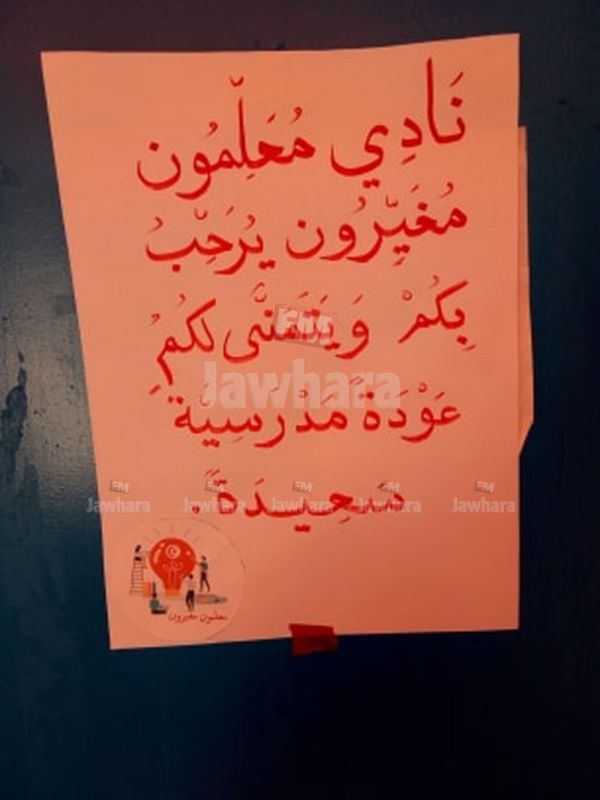 نَادِي مُعَلِّمُون
مُغَيِّرُون يُرَحِّبُ
بِكُمْ وَيَتَمَنَّى لكُمُ
عَوْدَةً مَدْرَسِيَّةً
سَعِيدَةً.
معلمون مغيرون
FM
Jawhara
FM Jawhara FM Jawhara FM Jawhara FM Jawhara FM Jawhara